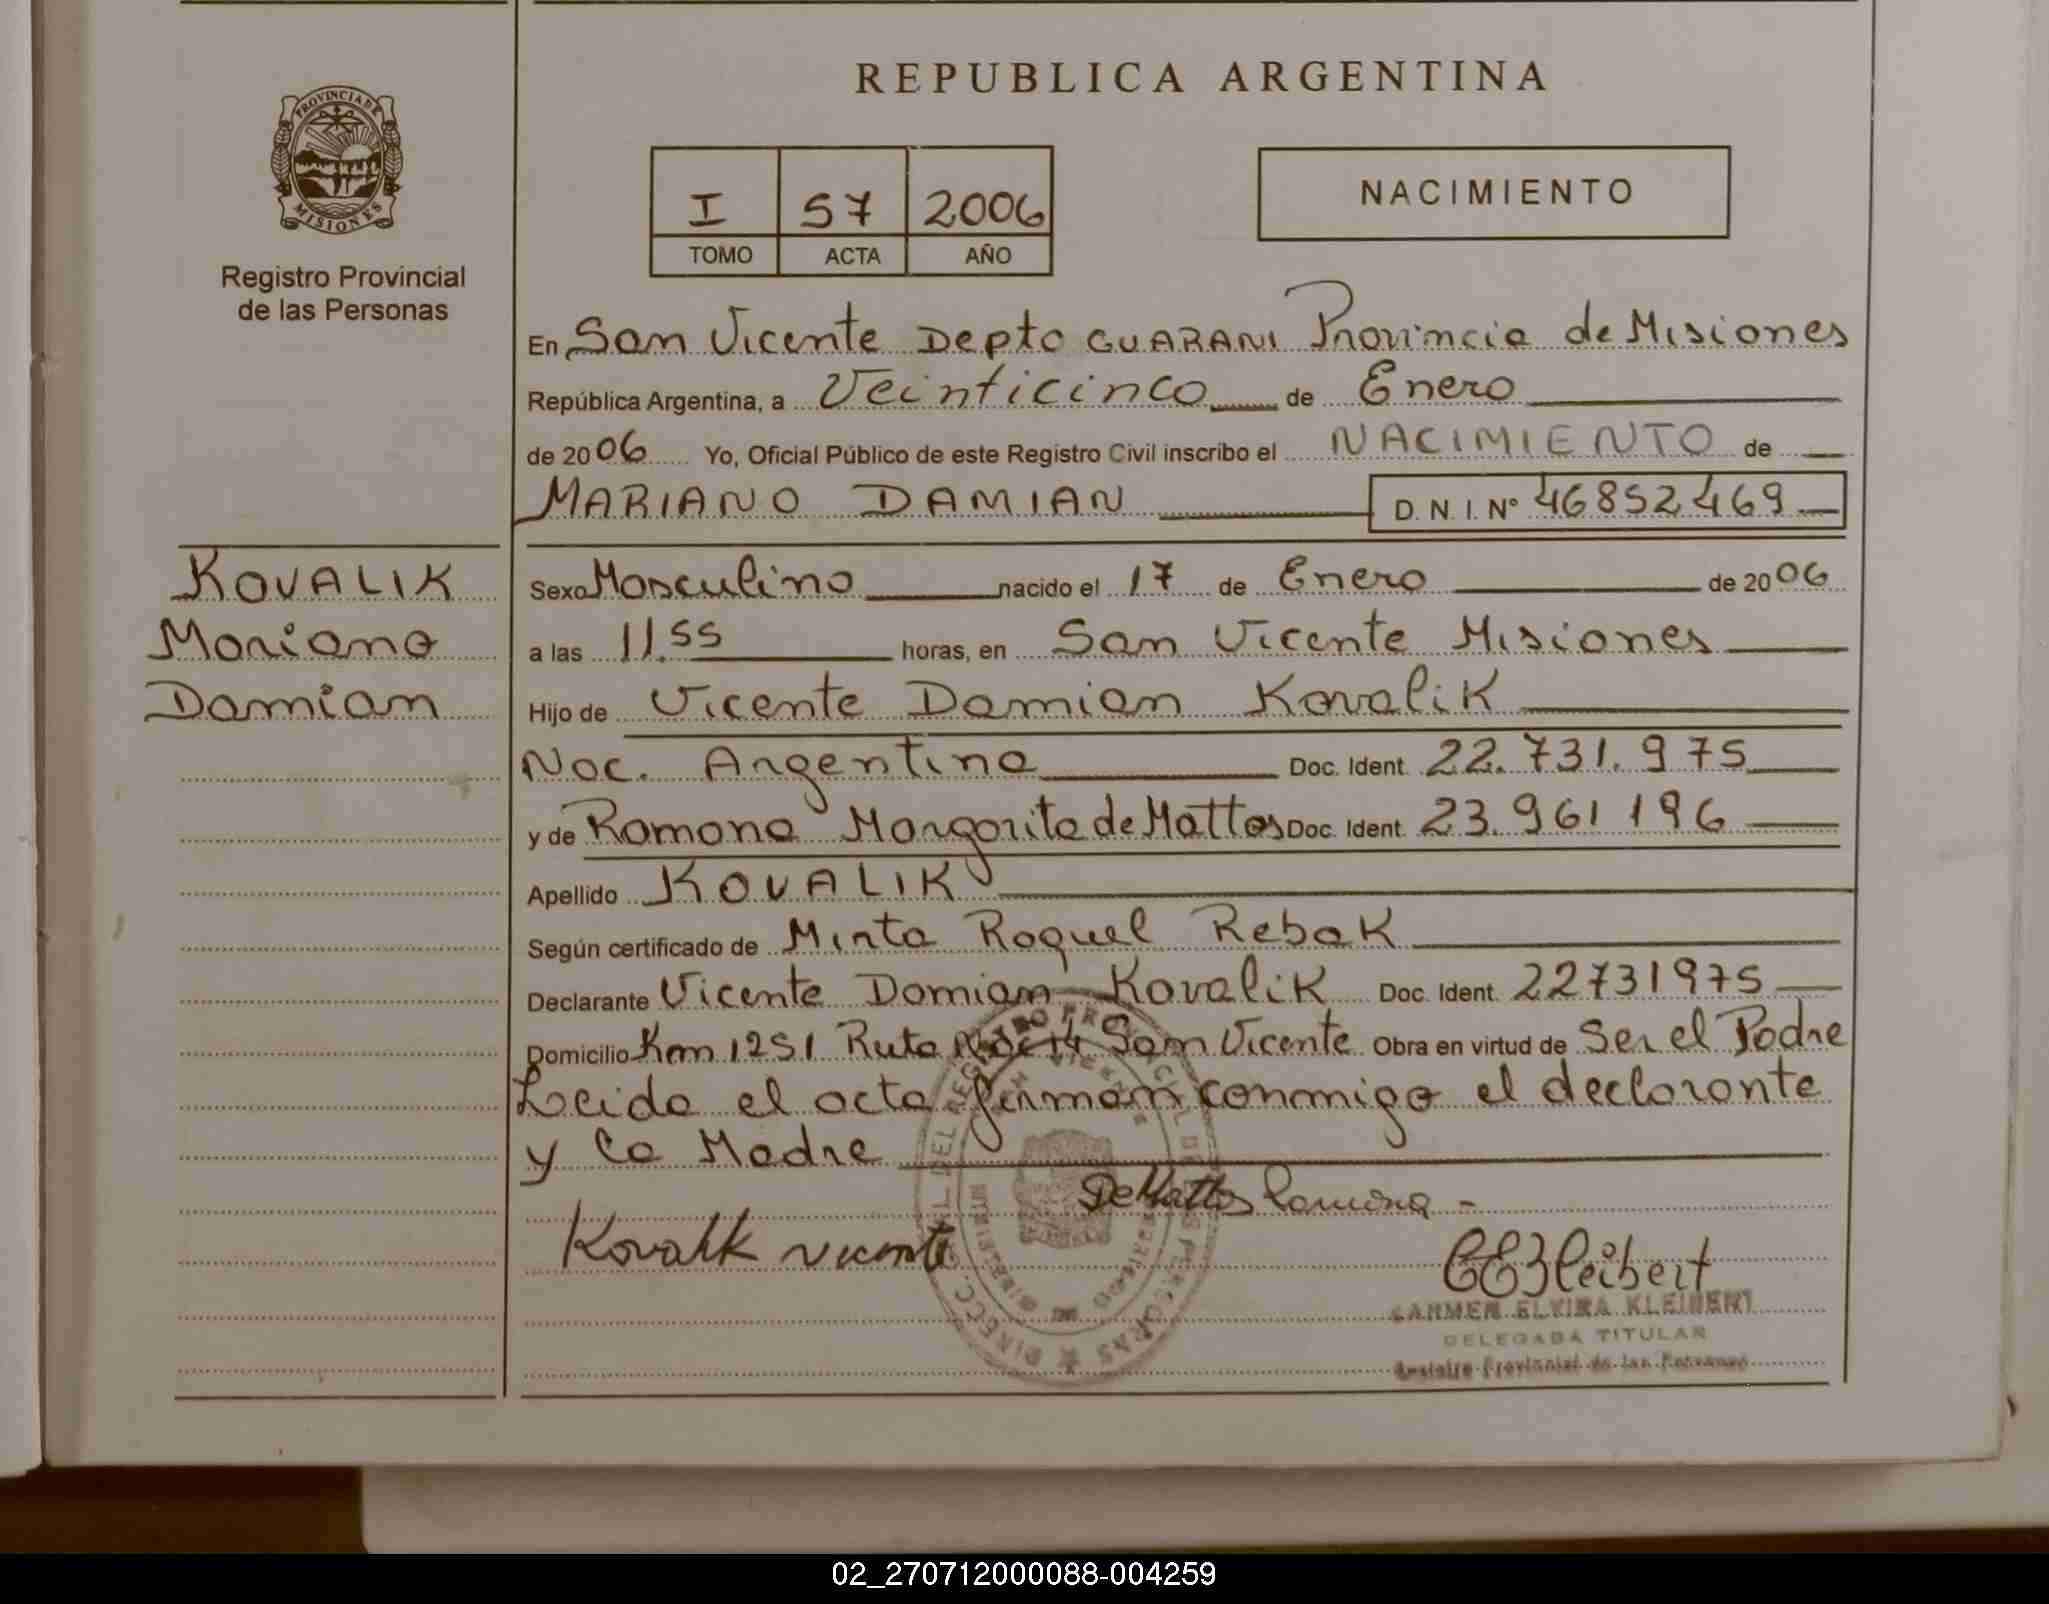 REPUBLICA ARGENTINA
PROVINCIA DE
MISIONES
Registro Provincial
de las Personas
I 57 2006
TOMO ACTA AÑO
NACIMIENTO
En San Vicente Depto GUARANI Provincia de Misiones
República Argentina, a Veinticinco de Enero
de 2006 Yo, Oficial Público de este Registro Civil inscribo el NACIMIENTO de
MARIANO DAMIAN D.N.I. Nº 46852469
KOVALIK
Mariano
Damian
Sexo Masculino nacido el 17 de Enero de 2006
a las 11.55 horas, en San Vicente Misiones
Hijo de Vicente Damian Kovalik
Nac. Argentina Doc. Ident. 22.731.975
y de Ramona Margarita de Mattos Doc. Ident. 23.961196
Apellido KOVALIK
Según certificado de Mirta Raquel Rebak
Declarante Vicente Damian Kovalik Doc. Ident. 22731975
Domicilio Km 1251 Ruta 14 San Vicente Obra en virtud de Ser el Padre
Leida el acta firman conmigo el declarante
y la Madre
De Mattos Ramona -
Kovalik Vicente
CEKleibert
CARMEN ELVIRA KLEIBERT
DELEGADA TITULAR
Registro Provincial de las Personas
02_270712000088-004259